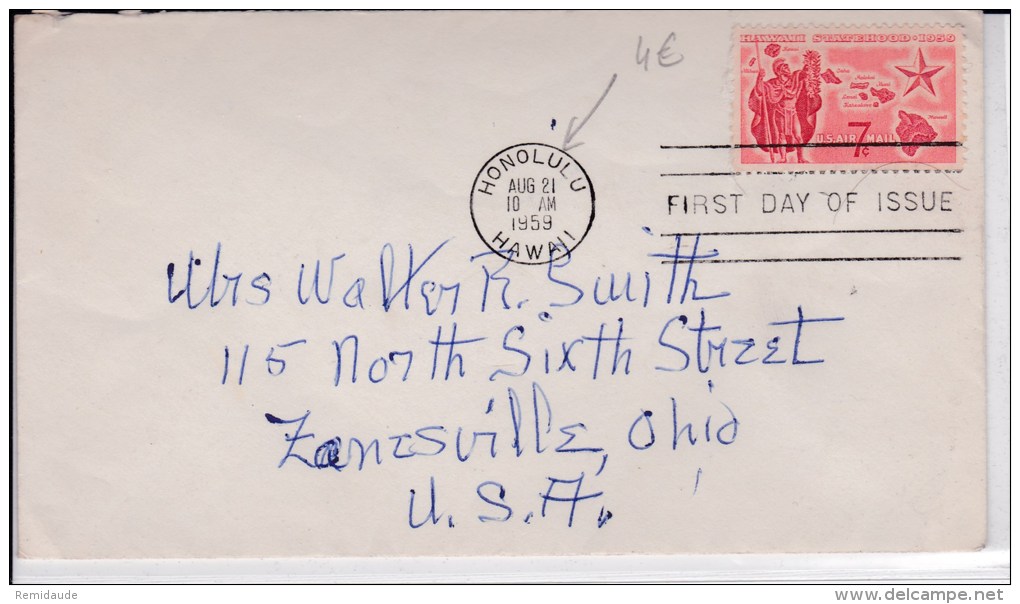 4€
HAWAII STATEHOOD · 1959
U.S. AIR MAIL
7¢
HONOLULU
AUG 21
10 AM
1959
HAWAII
FIRST DAY OF ISSUE
Mrs Walter R. Smith
115 North Sixth Street
Zanesville, Ohio
U.S.A.
Remidaude
delcampe.net